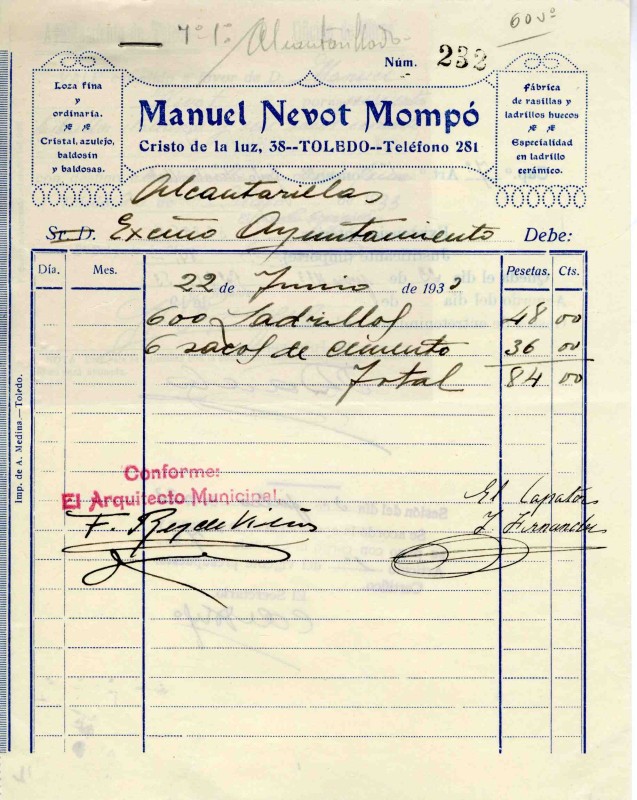 Alcantarillado
Núm. 232
Loza fina
y
ordinaria.
Cristal, azulejo,
baldosín
y baldosas.
Manuel Nevot Mompó
Cristo de la luz, 38--TOLEDO--Teléfono 281
Fábrica
de rasillas y
ladrillos huecos
Especialidad
en ladrillo
cerámico.
Alcantarillas
Sr. D. Excmo Ayuntamiento Debe:
Día. Mes. Pesetas. Cts.
22 de Junio de 193
600 Ladrillos 48 00
6 sacos de cimento 36 00
Total 84 00
Conforme:
El Arquitecto Municipal,
El Capataz
F.
Imp. de A. Medina.—Toledo.